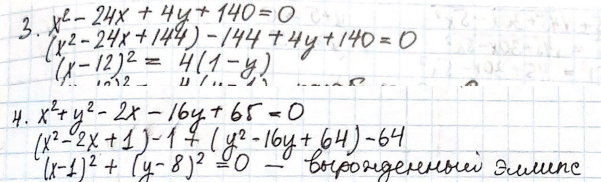 3. x² - 24x + 4y + 140 = 0
(x² - 24x + 144) - 144 + 4y + 140 = 0
(x - 12)² = 4(1 - y)
4. x² + y² - 2x - 16y + 65 = 0
(x² - 2x + 1) - 1 + (y² - 16y + 64) - 64
(x - 1)² + (y - 8)² = 0 — вырожденный эллипс